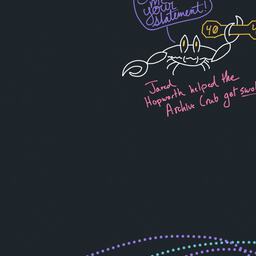 your
statement!
40
Jared
Hopworth helped the
Archive Crab got